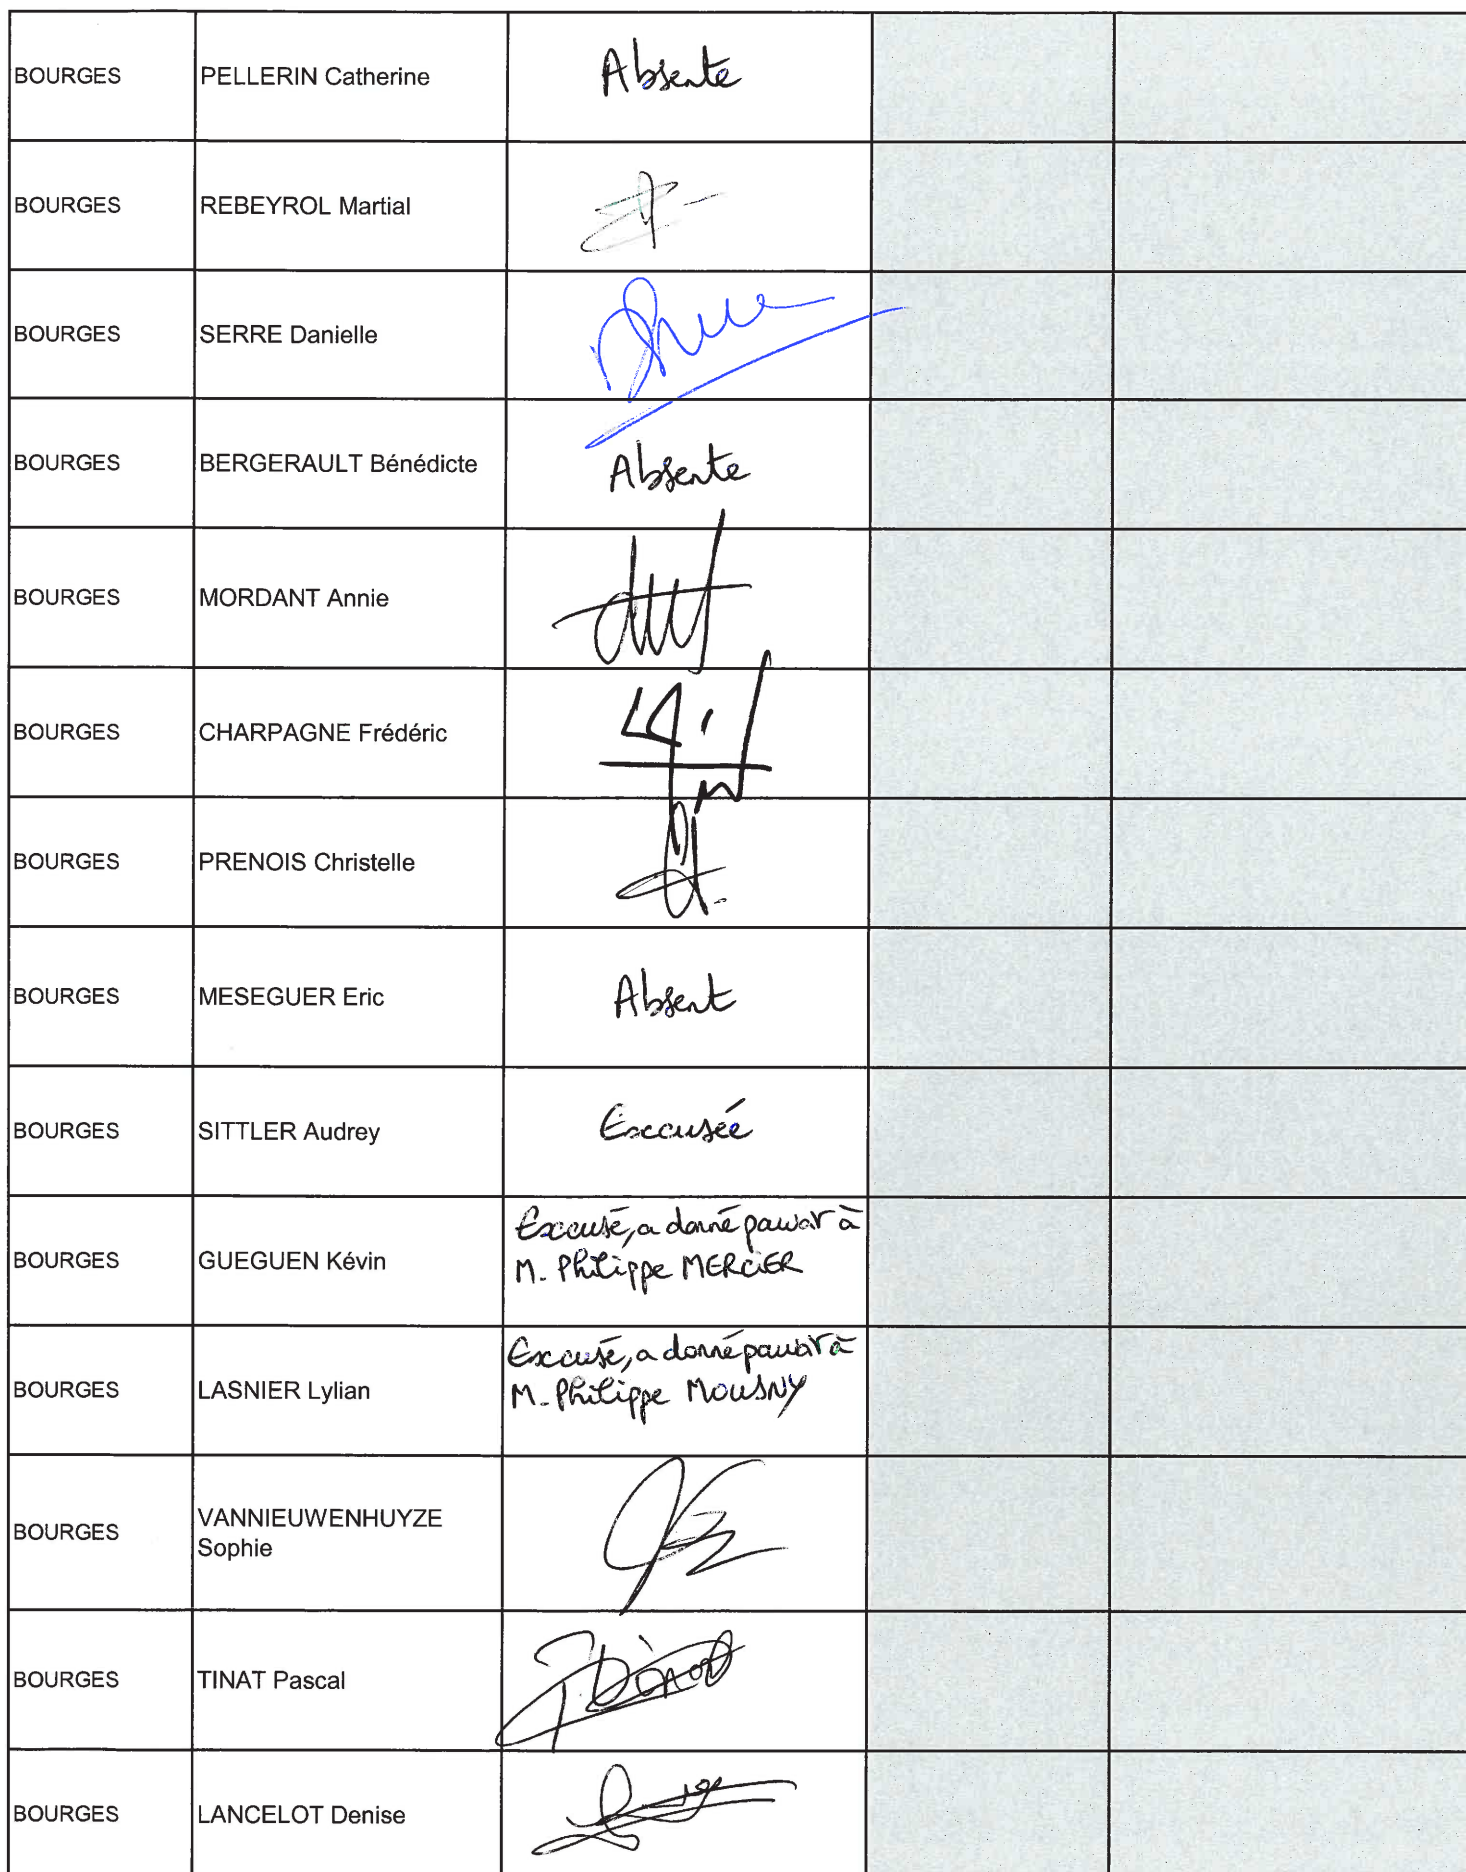 BOURGES PELLERIN Catherine Absente
BOURGES REBEYROL Martial
BOURGES SERRE Danielle
BOURGES BERGERAULT Bénédicte Absente
BOURGES MORDANT Annie
BOURGES CHARPAGNE Frédéric
BOURGES PRENOIS Christelle
BOURGES MESEGUER Eric Absent
BOURGES SITTLER Audrey Excusée
BOURGES GUEGUEN Kévin Excusé, a donné pouvoir à
M. Philippe MERCIER
BOURGES LASNIER Lylian Excusé, a donné pouvoir à
M. Philippe MOUSNY
BOURGES VANNIEUWENHUYZE
Sophie
BOURGES TINAT Pascal
BOURGES LANCELOT Denise